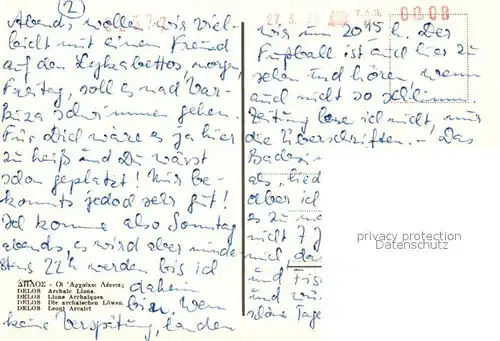 2
Abends wollen wir viel-
leicht mit einem Freund
auf den Lykabettos, morgen,
Freitag, soll es nach Var-
kiza schwimmen gehen.
Für Dich wäre es ja hier
zu heiß und Du wärst
schon geplatzt! Mir be-
kommts jedoch sehr gut!
Ich komme also Sonntag
abends, es wird aber minde-
stens 22h werden bis ich
daheim
bin. Wenn
keine Verspätung, landen
ΔΗΛΟΣ - Οἱ Ἀρχαϊκοὶ Λέοντες
DELOS Archaic Lions.
DELOS Lions Archaïques.
DELOS Die archaischen Löwen.
DELOS Leoni Arcaici
0008
wir um 2045 h. Der
Fußball ist auch hier zu
sehen und hören, wenn
auch nicht so schlimm.
Zeitung lese ich nicht, nur
die Überschriften. – Das
als „
aber ich
es zu
nicht 7
und
und
schöne Tage
privacy protection
Datenschutz